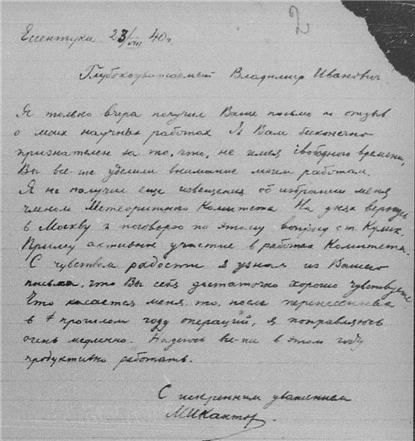 2
Ессентуки 23/VIII 40 г.
Глубокоуважаемый Владимир Иванович.
Я только вчера получил Ваше письмо и отзыв
о моих научных работах. Я Вам бесконечно
признателен за то, что, не имея свободного времени,
Вы все-же уделили внимание моим работам.
Я не получил еще извещения об избрании меня
членом Метеоритного Комитета. На днях вернусь
в Москву и поговорю по этому вопросу с т. Кулик.
Приму активное участие в работах Комитета.
С чувством радости я узнал из Вашего
письма, что Вы себя достаточно хорошо чувствуете.
Что касается меня, то, после перенесенных
в прошлом году операций, я поправляюсь
очень медленно. Надеюсь все-же в этом году
продуктивно работать.
С искренним уважением
МИКантор